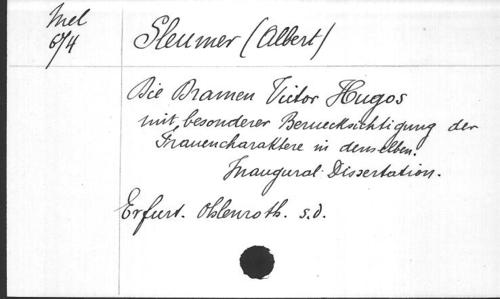 Mel
6/4
Sleumer (Albert)
Die Dramen Victor Hugos
mit besonderer Beruecksichtigung der
Frauencharaktere in denselben.
Inaugural-Dissertation.
Erfurt. Ohlenroth. s.d.